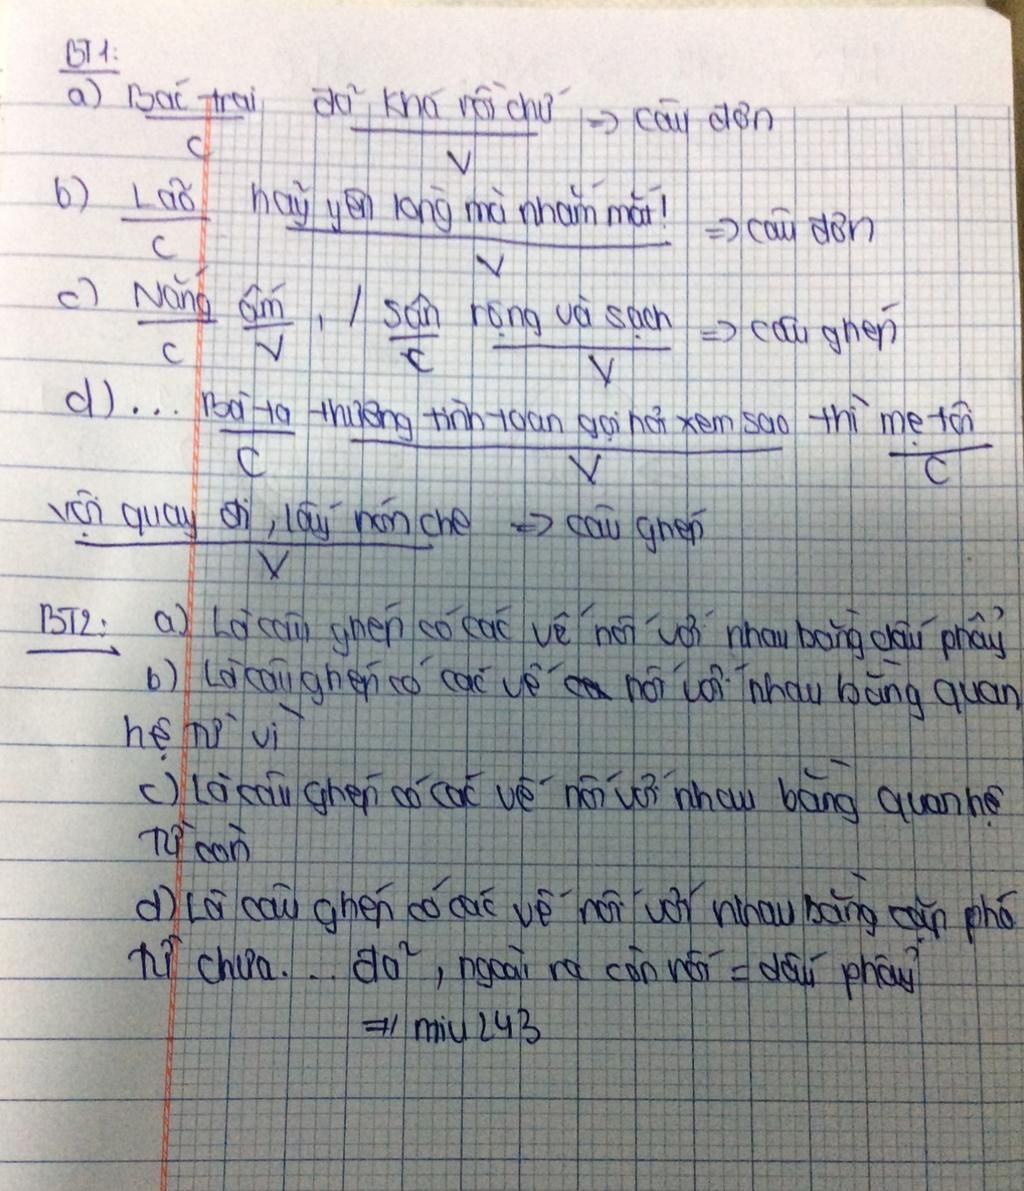 BT1:
a) Bác trai đã khá rồi chứ => câu đơn
C V
b) Lão hãy yên lòng mà nhắm mắt! => câu đơn
C V
c) Nắng ấm, / sân rộng và sạch => câu ghép
C V C V
d) ... Bà ta thương tình toan gọi hỏi xem sao thì mẹ tôi
C V C
vội quay đi, lấy nón che => câu ghép
V
BT2: a) Là câu ghép có các vế nối với nhau bằng dấu phẩy
b) Là câu ghép có các vế nối với nhau bằng quan
hệ từ vì
c) Là câu ghép có các vế nối với nhau bằng quan hệ
từ còn
d) Là câu ghép có các vế nối với nhau bằng cặp phó
từ chưa... đã, ngoài ra còn nối = dấu phẩy
=> miu243